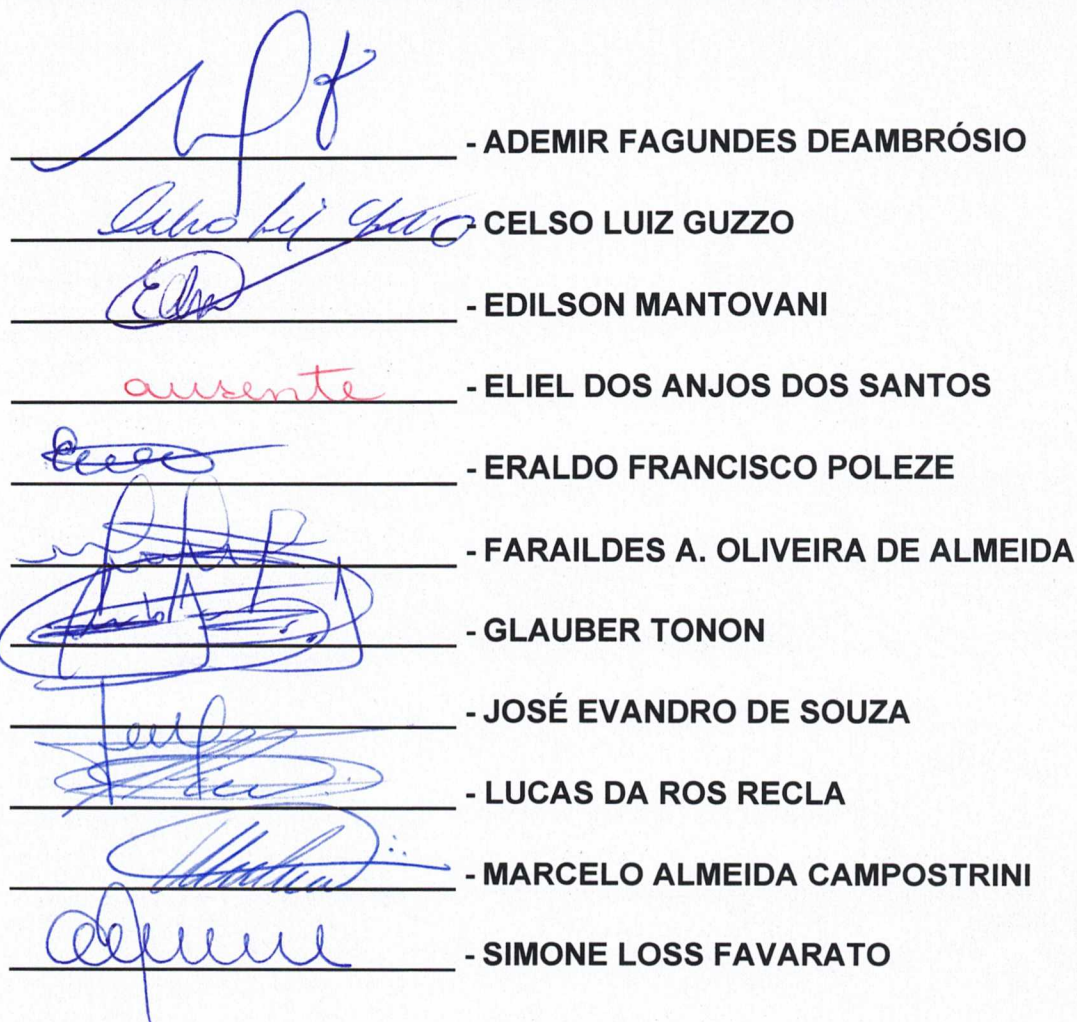 - ADEMIR FAGUNDES DEAMBRÓSIO
- CELSO LUIZ GUZZO
- EDILSON MANTOVANI
ausente - ELIEL DOS ANJOS DOS SANTOS
- ERALDO FRANCISCO POLEZE
- FARAILDES A. OLIVEIRA DE ALMEIDA
- GLAUBER TONON
- JOSÉ EVANDRO DE SOUZA
- LUCAS DA ROS RECLA
- MARCELO ALMEIDA CAMPOSTRINI
- SIMONE LOSS FAVARATO